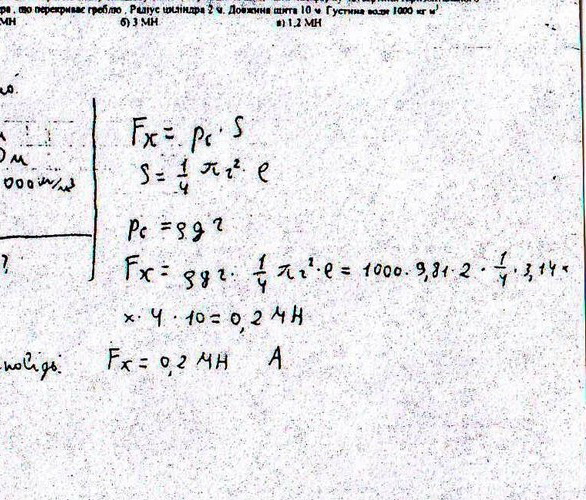 що перекриває греблю . Радіус циліндра 2 м. Довжина щита 10 м Густина води 1000 кг м³
МН б) 3 МН в) 1,2 МН
Fx = pc · S
S = 1/4 πr² · ℓ
pc = ρgr
Fx = ρgr · 1/4 πr² · ℓ = 1000 · 9,81 · 2 · 1/4 · 3,14 ×
× · 4 · 10 = 0,2 МН
?
Fx = 0,2 МН А